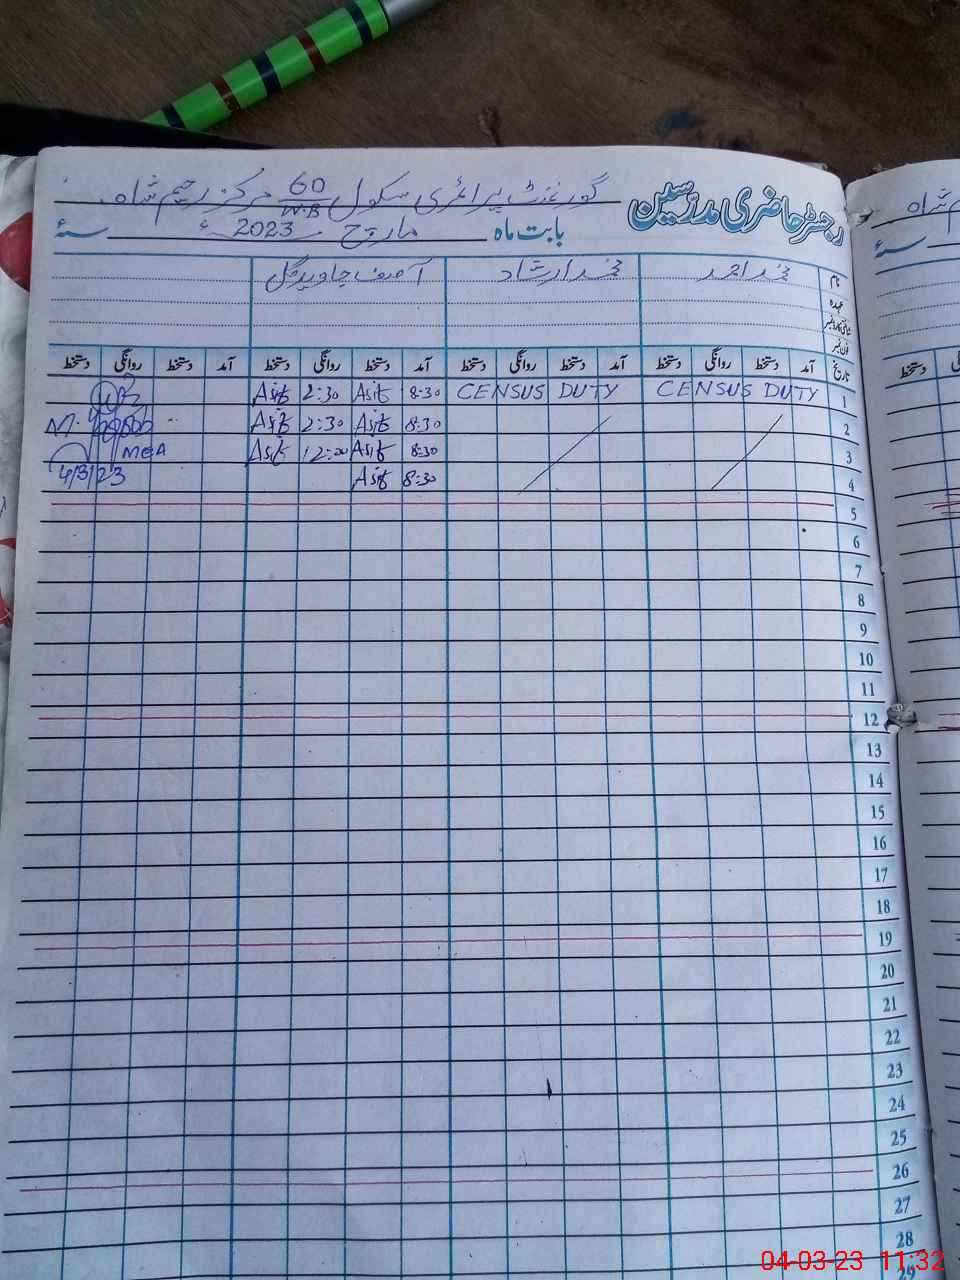 رجسٹر حاضری مدرسین
گورنمنٹ پرائمری سکول 60 W.B مرکز رحیم شاہ
بابت ماہ مارچ 2023ء سنۂ
نام محمد احمد محمد ارشاد آصف جاوید گل
عہدہ
شناختی کارڈ نمبر
فون نمبر
تاریخ آمد دستخط روانگی دستخط آمد دستخط روانگی دستخط آمد دستخط روانگی دستخط آمد دستخط روانگی دستخط
1 CENSUS DUTY CENSUS DUTY 8:30 Asif 2:30 Asif
2 8:30 Asif 2:30 Asif
3 8:30 Asif 12:00 Asif MEA
4 8:30 Asif 4/3/23
5
6
7
8
9
10
11
12
13
14
15
16
17
18
19
20
21
22
23
24
25
26
27
28
29
دستخط
04-03-23 11:32